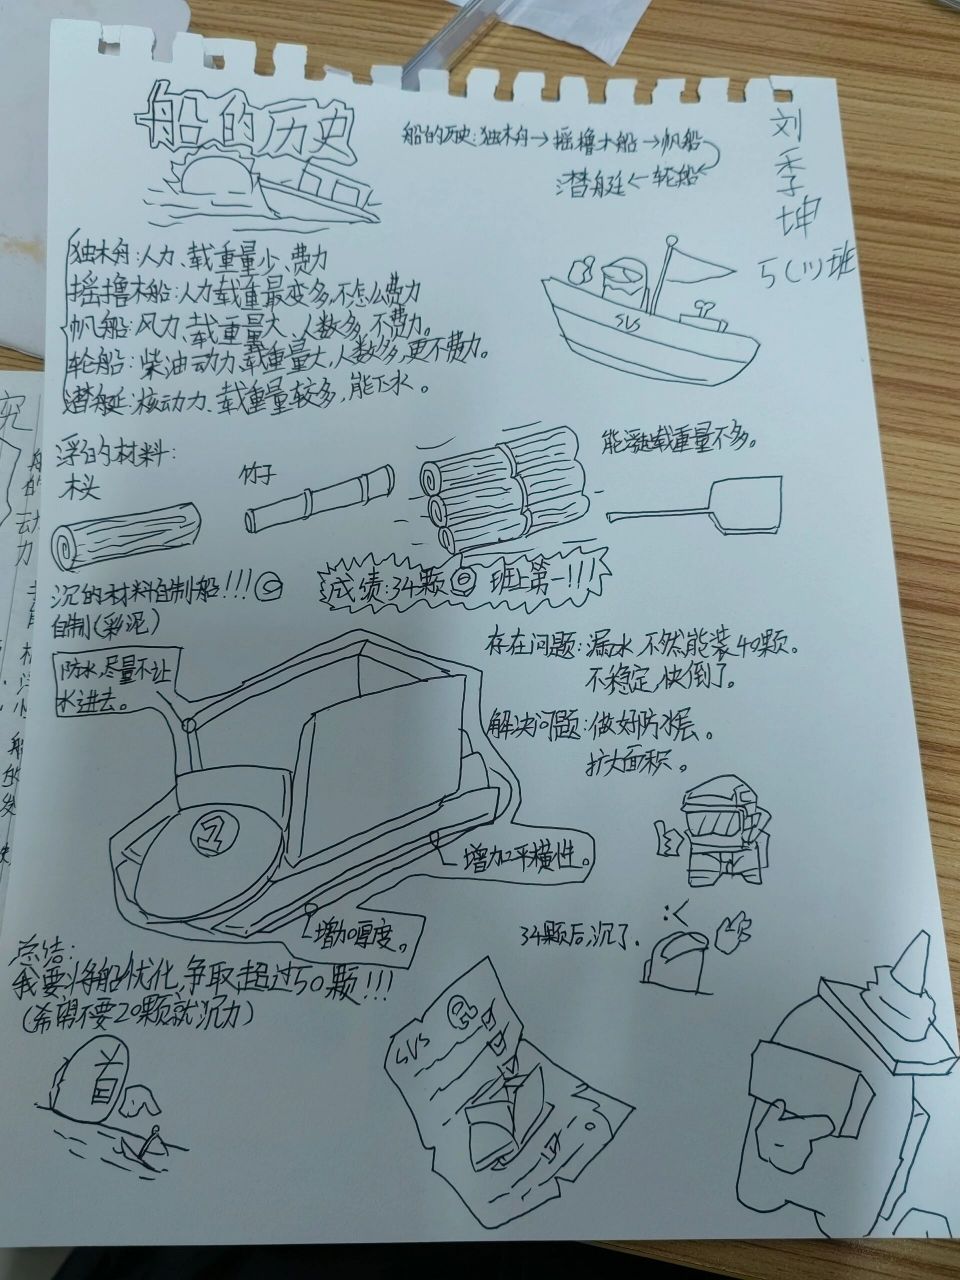 船的历史
船的历史:独木舟→摇撸木船→帆船
潜艇←轮船
刘季坤
5(1)班
独木舟:人力、载重量少、费力
摇撸木船:人力载重量变多,不怎么费力
帆船:风力、载重量大、人数多,不费力。
轮船:柴油动力、载重量大,人数多,更不费力。
潜艇:核动力、载重量较多,能下水。
SVS
浮的材料:
木头
竹子
能浮起载重量不多。
沉的材料自制船!!!
自制(彩泥)
成绩:34颗 班上第一!!!
防水,尽量不让
水进去。
存在问题:漏水 不然能装40颗。
不稳定,快倒了。
解决问题:做好防水层。
扩大面积。
1
增加平横性。
增加厚度。
34颗后,沉了.
:<
总结:
我要将船优化,争取超过50颗!!!
(希望不要20颗就沉力)
SVS